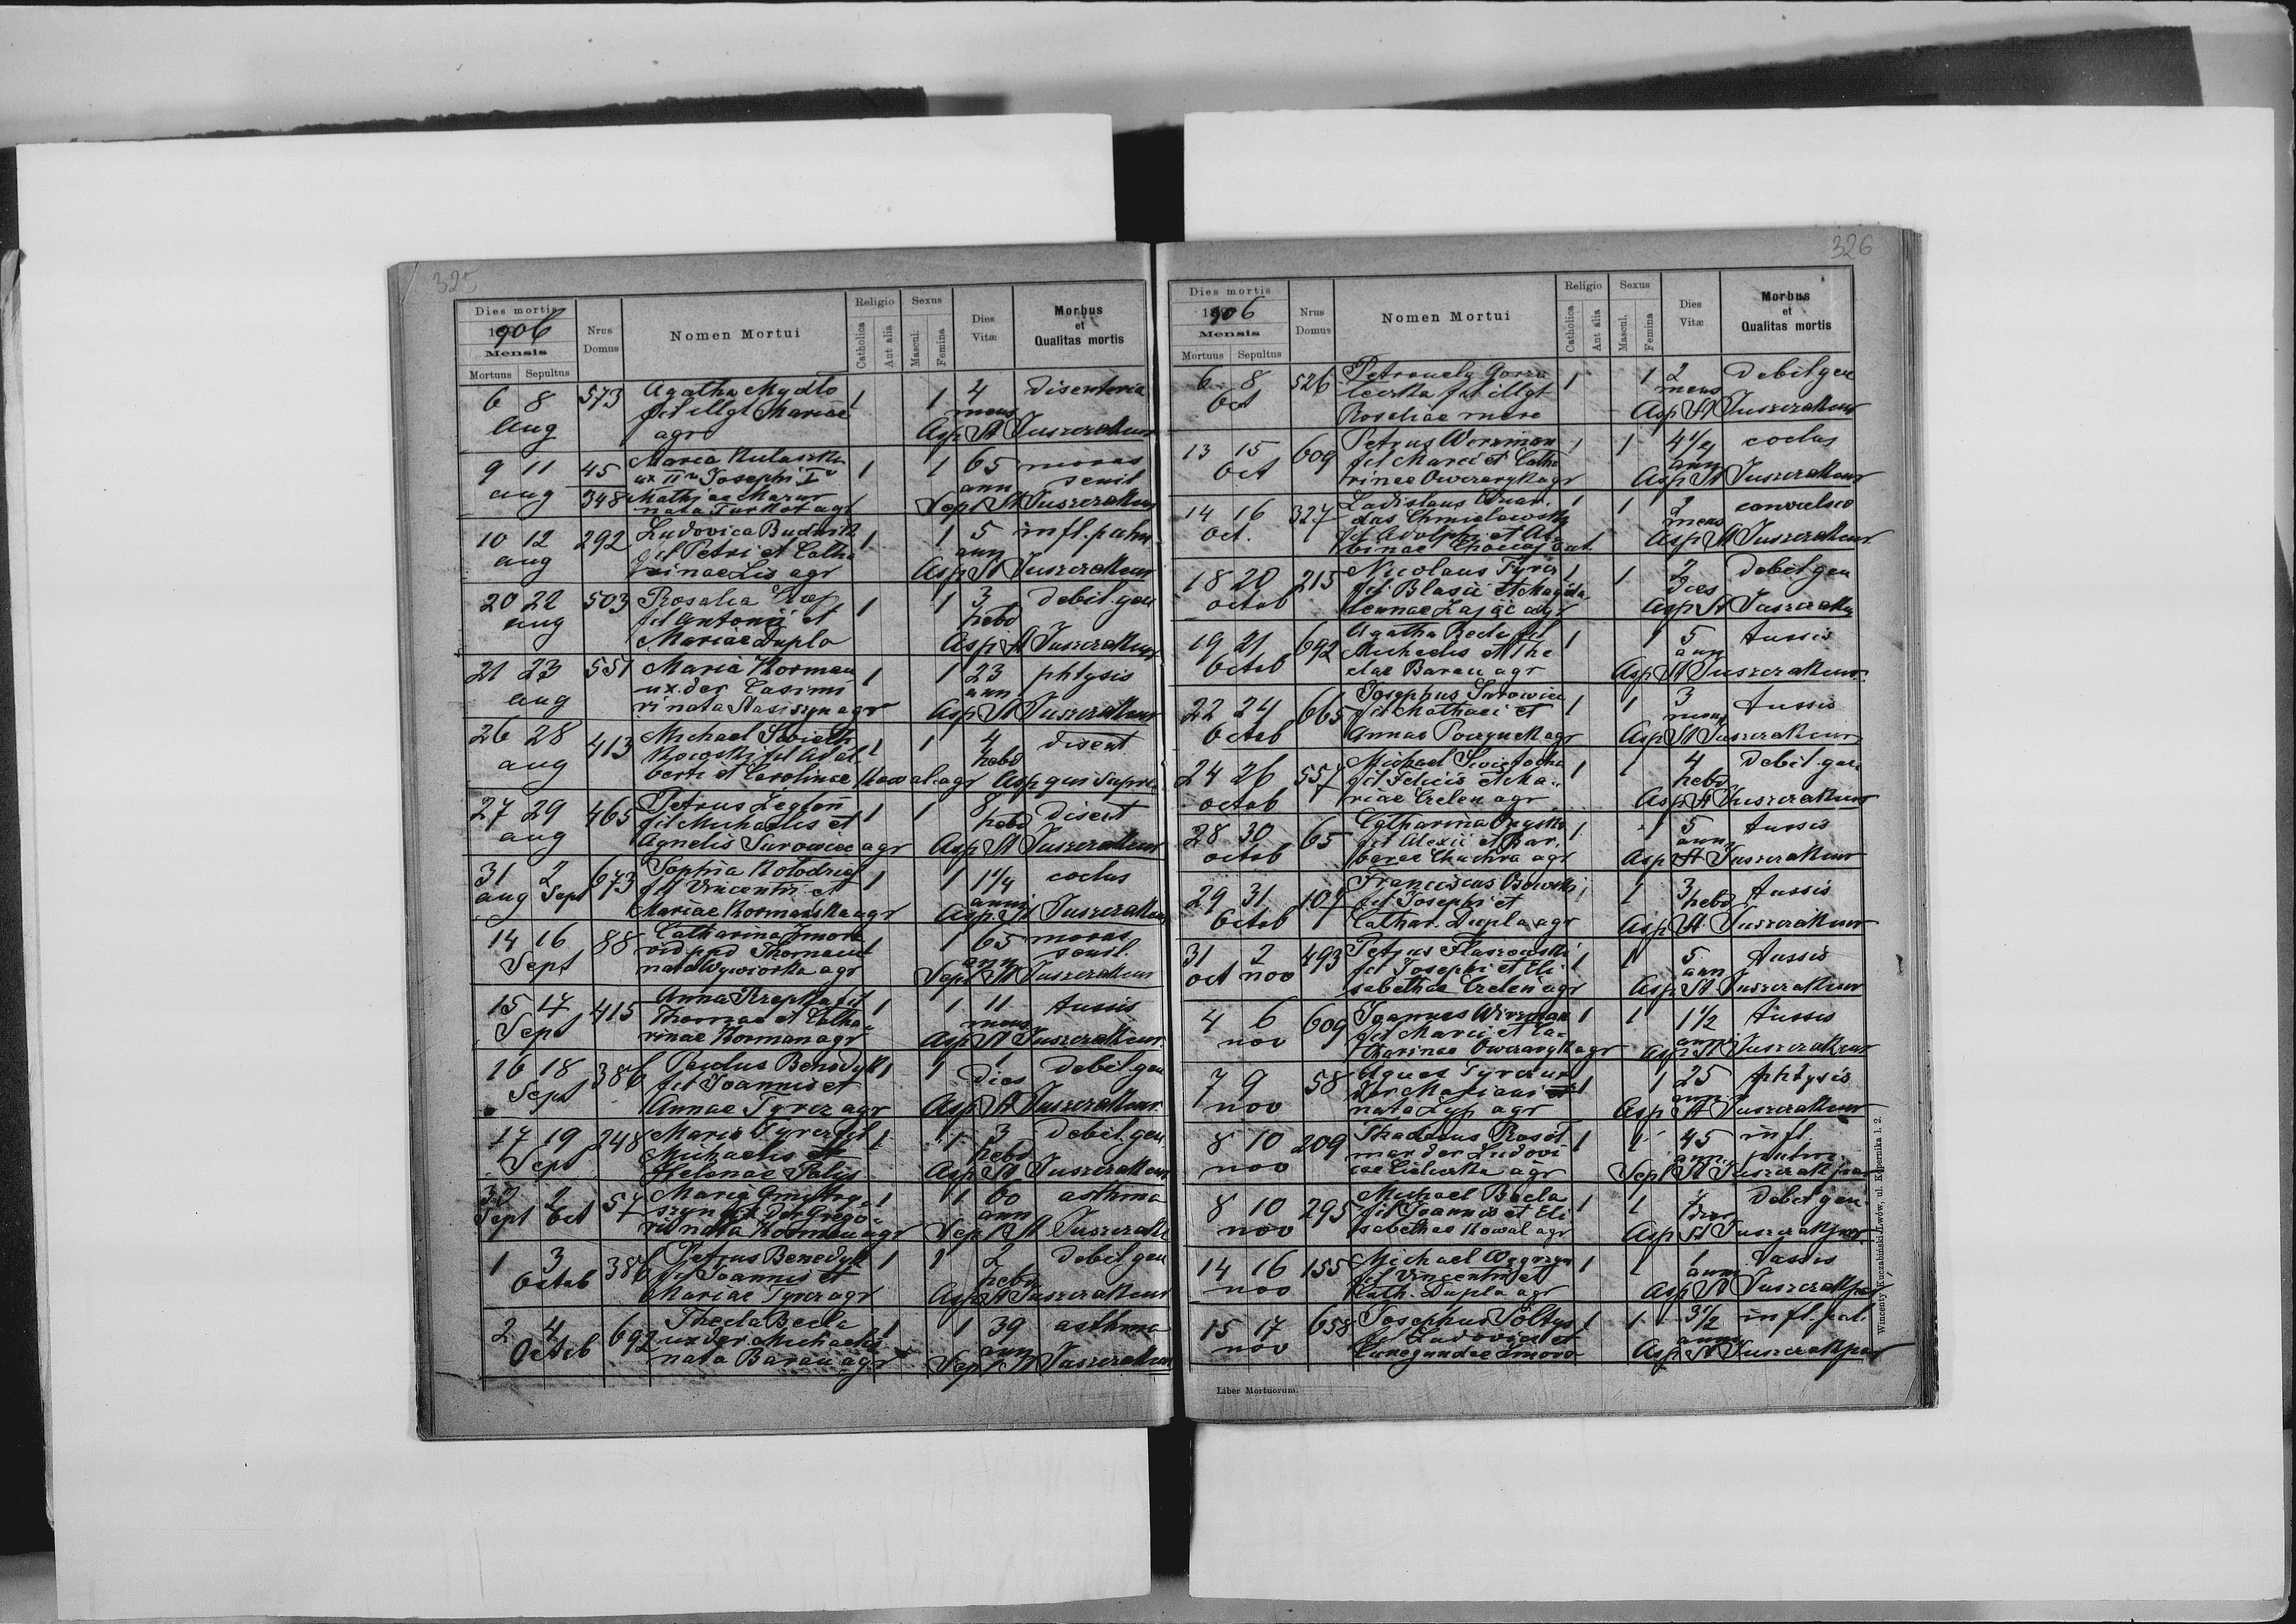 325
Dies mortis
1906
Mensis
Mortuus Sepultus
Nrus Domus
Nomen Mortui
Religio
Catholica
Aut alia
Sexus
Mascul.
Femina
Dies Vitæ
Morbus et Qualitas mortis
6 8 573 Agatha Mydło 1 1 4 disenteria
Aug fil illgt Mariae mens
agr Asp St Juszczakiew
9 11 45 Maria 1 1 65 moras
aug ux II v Josephi I v ann senil
348 Mathiae Mazur
nata Turkot agr Sept St Juszczakiew
10 12 292 Ludovica Budnik 1 1 5 infl. pulm
aug fil Petri et Catha ann
rinae Lis agr Asp St Juszczakiew
20 22 503 Rosalia 1 1 3 debil. gen
aug fil Antonii et hebd
Mariae Dupla Asp St Juszczakiew
21 23 551 Maria Korman 1 1 23 phtysis
aug ux. der Casimi ann
ri nata Stasiszyn agr Asp St Juszczakiew
26 28 413 Michael 1 1 4 disent
aug kowski fil Adal hebd
berti et Carolinae Kowal agr Asp qui supra
27 29 465 Petrus Zegleń 1 1 8 disent
aug fil Michaelis et hebd
Agnelis Surowiec agr Asp St Juszczakiew
31 2 673 Sophia Kołodziej 1 1 1 1/4 coclus
aug Sept fil Vincentii et anni
Mariae Kormańska agr Asp St Juszczakiew
14 16 88 Catharina Zmora 1 1 65 moras
Sept vid ppd Thomam ann senil.
nata Wywiórka agr Sept St Juszczakiew
15 17 415 Anna Rzepka fil 1 1 11 tussis
Sept Thomae et Catha- mens
rinae Korman agr Asp St Juszczakiew
16 18 386 Paulus Benedyk 1 1 1 debil gen
Sept fil Joannis et dies
Annae Tyrcz agr Asp St Juszczakiew
17 19 248 Maria Tyrcz fil 1 1 3 debil. gen
Sept Michaelis et hebd
Helenae Palys Asp St Juszczakiew
2 57 Maria 1 1 60 asthma
Sept Oct szyn ux der Grego- ann
rii nata Korman agr Sept St Juszczak
1 3 386 Petrus Benedyk 1 1 2 debil gen
Octob fil Joannis et hebd
Mariae Tyrcz agr Asp St Juszczakiew
2 4 692 Thecla Becla 1 1 39 asthma
Octob ux der Michaelis ann
nata Baran agr Sept St Juszczakiew
326
Dies mortis
1906
Mensis
Mortuus Sepultus
Nrus Domus
Nomen Mortui
Religio
Catholica
Aut alia
Sexus
Mascul.
Femina
Dies Vitæ
Morbus et Qualitas mortis
6 8 526 Petronela 1 1 2 debil gen
Oct fil illgt mens
Rosaliae merc Asp St Juszczakiew
13 15 609 Petrus Wirzman 1 1 4 1/2 coclus
Oct fil Marci et Catha ann
rinae Owczaryk agr Asp St Juszczakiew
14 16 327 Ladislaus Eduar- 1 1 2 convulsio
Oct. dus Chmielowski mens
fil Adolphi et Al- Asp St Juszczakiew
binae
18 20 215 Nicolaus Tyrcz 1 1 2 debil gen
octob fil Blasii et Magda dies
lennae Zając agr Asp St Juszczakiew
19 21 692 Agatha Becla fil 1 1 5 tussis
Octob Michaelis et The ann
clae Baran agr Asp St Juszczakiew
22 24 665 Josephus Surowiec 1 1 3 tussis
Octob fil Mathaei et mens
Annae agr Asp St Juszczakiew
24 26 557 Michael 1 1 4 debil. gen
octob fil Felicis et Ma- hebd
riae Crelen agr Asp St Juszczakiew
28 30 65 Catharina 1 1 5 tussis
octob fil Alexii et Bar- ann
barae Chuchra agr Asp St Juszczakiew
29 31 107 Franciscus Osowski 1 1 3 tussis
Octob fil Josephi et hebd
Cathar. Dupla agr Asp St Juszczakiew
31 2 493 Petrus Staszowski 1 1 5 tussis
oct nov fil Josephi et Eli ann
sabethae Crelen agr Asp St Juszczakiew
4 6 609 Joannes Wirzman 1 1 1 1/2 tussis
nov fil Marci et Ca- anni
tharinae Owczaryk agr Asp St Juszczakiew
7 9 58 Agnes Tyrcz ux 1 1 25 phtysis
nov der Mariani ann
nata Zyp agr Asp St Juszczakiew
8 10 209 Thadaeus Rosół 1 1 45 infl.
nov mar der Ludovi ann. pulm.
cae agr Sept St Juszczak par
8 10 295 Michael Becla 1 1 7 debil gen.
nov fil Joannis et Eli dies
sabethae Kowal agr Asp St Juszczak par
14 16 155 Michael Węgrzyn 1 1 1 tussis
nov fil Vincentii et anni
Cath. Dupla agr Asp St Juszczak par
15 17 658 Josephus Sołtys 1 1 3 1/2 infl. pul
nov fil Ludovici et anni
Cunegundae Zmora Asp St Juszczak par
Liber Mortuorum.
Wincenty Kuczabiński Lwów, ul. Kopernika l. 2.